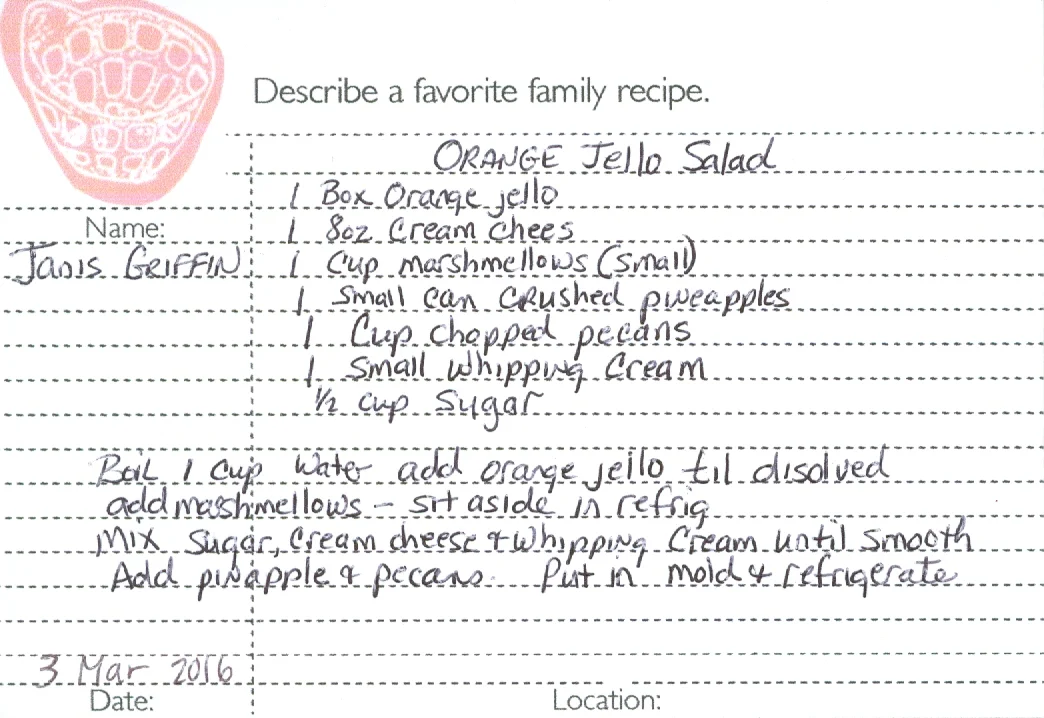 Describe a favorite family recipe.
ORANGE Jello Salad
1 Box Orange jello
Name:
1 8oz Cream chees
Janis GRIFFIN
1 Cup marshmellows (small)
1 Small can crushed pineapples
1 Cup chopped pecans
1 Small whipping Cream
1/2 cup Sugar
Boil 1 cup water add orange jello til disolved
add marshmellows - sit aside in refrig
Mix Sugar, Cream cheese & whipping Cream until smooth
Add pinapple & pecans. Put in mold & refrigerate
3 Mar 2016
Date:
Location: